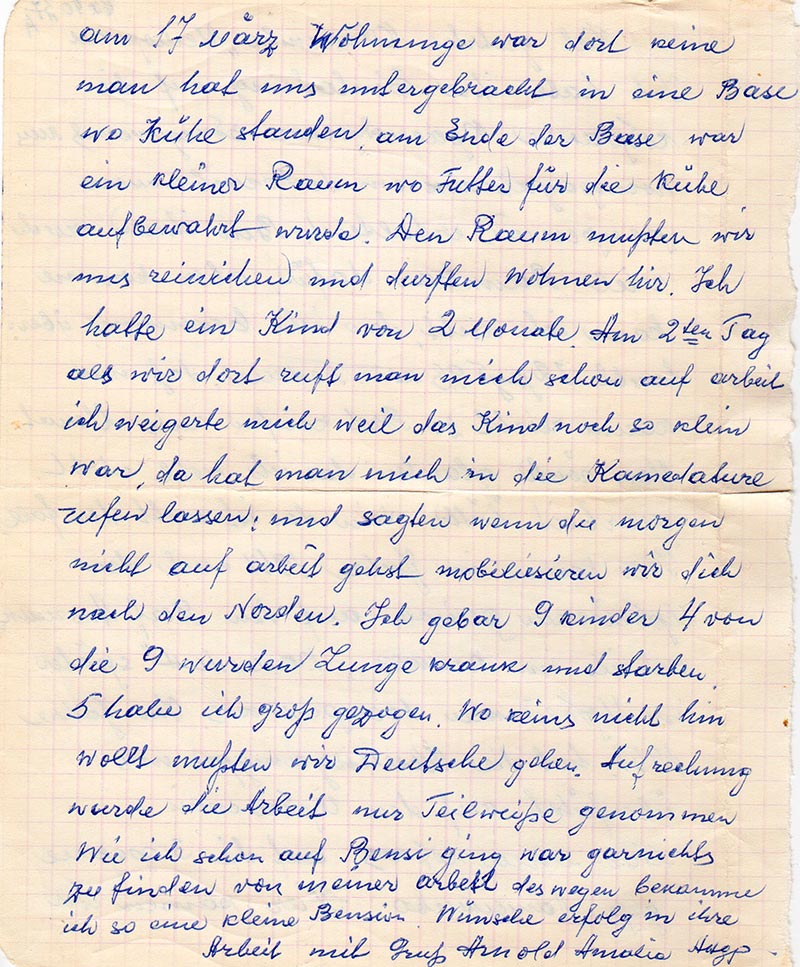 am 17 März Wohnunge war dort keine
man hat uns untergebracht in eine Base
wo Kühe standen, am Ende der Base war
ein kleiner Raum wo Futter für die Kühe
aufbewahrt wurde. Den Raum mußten wir
uns reinichen und durften wohnen hir. Ich
hatte ein Kind von 2 Monate. Am 2ten Tag
als wir dort ruft man mich schon auf arbeit
ich weigerte mich weil das Kind noch so klein
war, da hat man mich in die Kamedature
rufen lassen, und sagten wenn du morgen
nicht auf arbeit gehst mobiliesieren wir dich
nach den Norden. Ich gebar 9 kinder 4 von
die 9 wurden Lunge krank und starben.
5 habe ich groß gezogen. Wo keins nicht hin
wollt mußten wir Deutsche gehen. Aufrechnung
wurde die Arbeit nur Teilweiße genommen
Wie ich schon auf Bensi ging war garnichts
zu finden von meiner arbeit des wegen bekomme
ich so eine kleine Bension. Wünsche erfolg in ihre
Arbeit mit Gruß Arnold Amalia